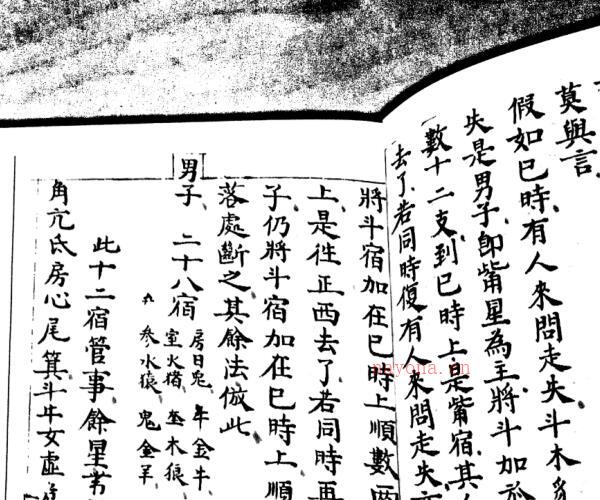 莫與言
假如巳時有人來問走失斗木
失是男子即觜星為主將斗加於
數十二支到巳時上是觜宿其人
去了若同時復有人來問走失
將斗宿加在巳時上順數
上是徃正西去了若同時再
子仍將斗宿加在巳時上順
落處斷之其餘法倣此
男子 二十八宿 房日兔 牛金牛
室火猪 奎木狼
參水猿 鬼金羊
此十二宿管事餘星
角亢氐房心尾箕斗牛女虛
nayona.cn